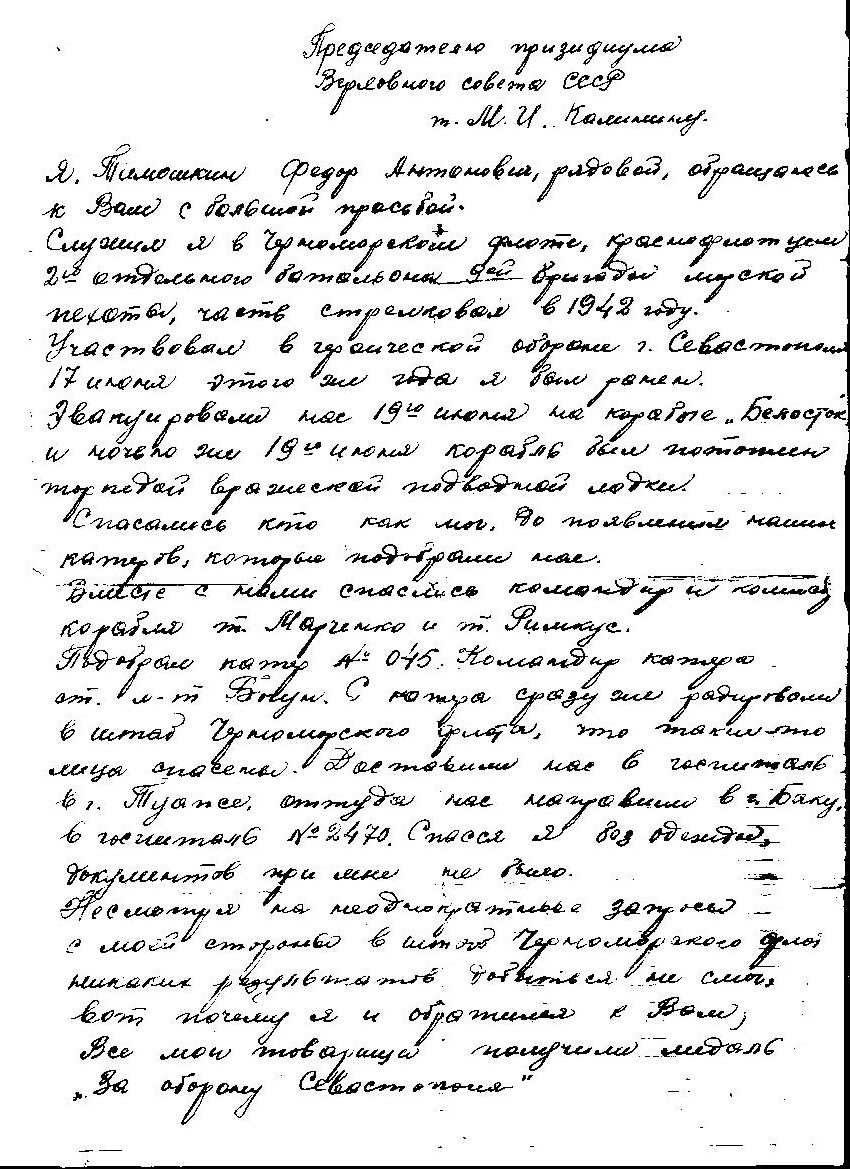 Председателю призидиума
Верховного совета СССР
т. М. И. Калинину.
Я, Тимошкин Федор Антонович, рядовой, обращаюсь
к Вам с большой просьбой.
Служил я в Черноморском флоте, краснофлотцем
2го отдельного батальона 9ой бригады морской
пехоты, часть стрелковая в 1942 году.
Участвовал в героической обороне г. Севастополя
17 июня этого же года я был ранен.
Эвакуировали нас 19го июня на корабле „Белосток
и ночью же 19го июня корабль был потоплен
торпедой вражеской подводной лодки.
Спасались кто как мог, до появления наших
катеров, которые подобрали нас.
Вместе с нами спаслись командир и комисс
корабля т. Марченко и т. Римкус.
Подобрал катер № 045. Командир катера
ст. л-т Богун. С катера сразу же радировали
в штаб Черноморского флота, что такие-то
лица спасены. Доставили нас в госпиталь
в г. Туапсе, оттуда нас направили в г. Баку,
в госпиталь № 2470. Спасся я без одежды,
документов при мне не было.
Несмотря на неоднократные запросы
с моей стороны в штаб Черноморского фло
никаких результатов добиться не смог,
вот почему я и обратился к Вам,
Все мои товарищи получили медаль
„За оборону Севастополя"